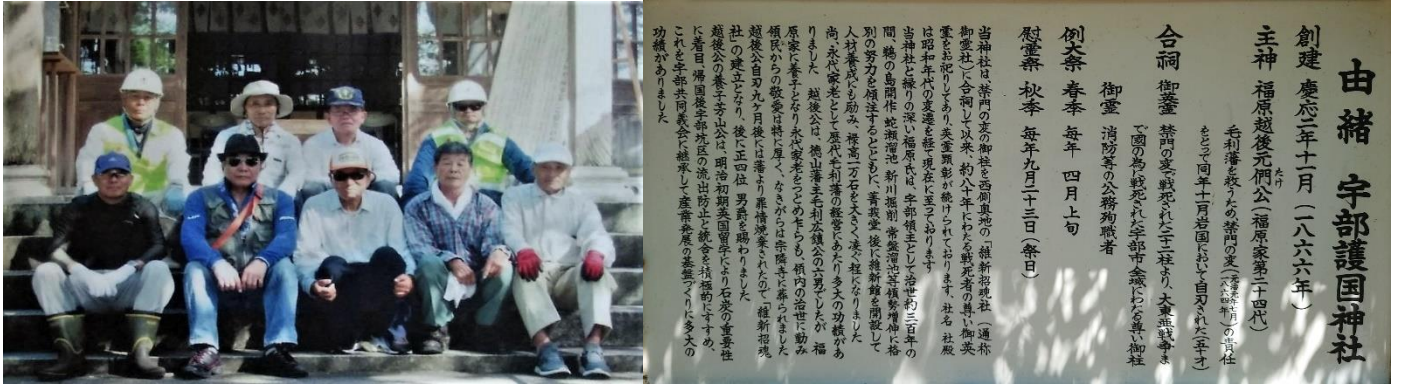 由緒 宇部護国神社
創建 慶応二年十一月（一八六六年）
主神 福原越後元僴公（福原家第二十四代）
たけ
毛利藩を救うため禁門の変（元治元年七月 一八六四年）の責任
をとって同年十一月岩国において自刃された（五十才）
合祠 御英霊 禁門の変で戦死された二十二柱より、大東亜戦争ま
で國の為に戦死された宇部市全域にわたる尊い御柱
御霊 消防等の公務殉職者
例大祭 春季 毎年 四月上旬
慰霊祭 秋季 毎年九月二十三日（祭日）
当神社は、禁門の変の御柱を西側奥地の「維新招魂社（通称
御霊社）に合祠して以来、約八十年にわたる戦死者の尊い御英
霊をお祀りしてあり、英霊顕彰が続けられております、社名 社殿
は昭和年代の変遷を経て現在に至っております
当神社と縁りの深い福原氏は、宇部領主として治世約三百年の
間、鵜の島開作 蛇瀬溜池 新川掘削 常盤溜池等領勢増伸に格
別の努力を傾注するとともに、菁莪堂 後に維新館を開設して
人材養成にも励み、禄高一万石を大きく凌ぐ程になりました
尚、永代家老として歴代毛利藩の経営にあたり多大の功績があ
りました 越後公は、徳山藩主毛利広鎮公の六男でしたが 福
原家に養子となり永代家老をつとめたらも、領内の治世に勤み
領民からの敬愛は特に厚く、なきがらは宗隣寺に葬られました
越後公自刃九ヶ月後には藩より罪情焼棄されたので「維新招魂
社」の建立となり、後に正四位 男爵を賜わりました
越後公の養子芳山公は、明治初期英国留学により石炭の重要性
に着目、帰国後宇部坑区の流出防止と統合を積極的にすすめ、
これを宇部共同義会に継承して産業発展の基盤づくりに多大の
功績がありました